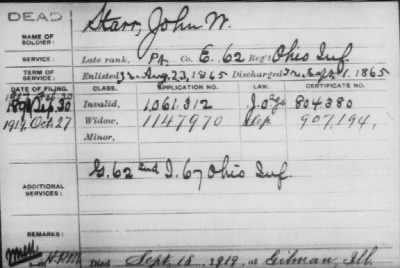 DEAD
NAME OF SOLDIER: Starr, John W.
SERVICE: Late rank, Pvt Co. E. 62 Reg't Ohio Inf.
TERM OF SERVICE: Enlisted Aug. 23, 1865 Discharged Sept. 1, 1865
DATE OF FILING. CLASS. APPLICATION NO. LAW. CERTIFICATE NO.
Sep 30 Invalid, 1,061,312 804380
1919 Oct. 27 Widow, 1147970 907,194,
Minor,
ADDITIONAL SERVICES: G. 62 2nd I. 67 Ohio Inf
REMARKS:
Died Sept. 18, 1919, at Gilman, Ill.